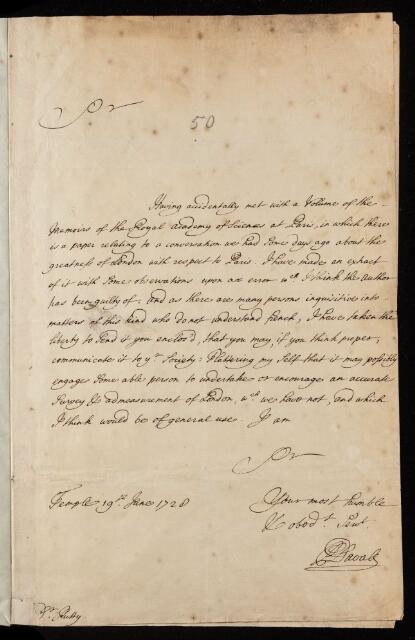 Sr
50
Having accidentally met with a Volume of the
Memoirs of the Royal Academy of Sciences at Paris, in which there
is a paper relating to a conversation we had some days ago about the
greatness of London with respect to Paris. I have made an extract
of it with some observations upon an error wch I think the author
has been guilty of: and as there are many persons inquisitive into
matters of this kind who do not understand french, I have taken the
liberty to send it you enclos'd, that you may, if you think proper,
communicate it to yr Society: Flattering my self that it may possibly
engage some able person to undertake or encourage an accurate
Survey & admeasurement of London, wch we have not, and which
I think would be of general use. I am
Sr
Temple 19th June 1728
Your most humble
& obedt Servt.
Davall
Dr. Rutty